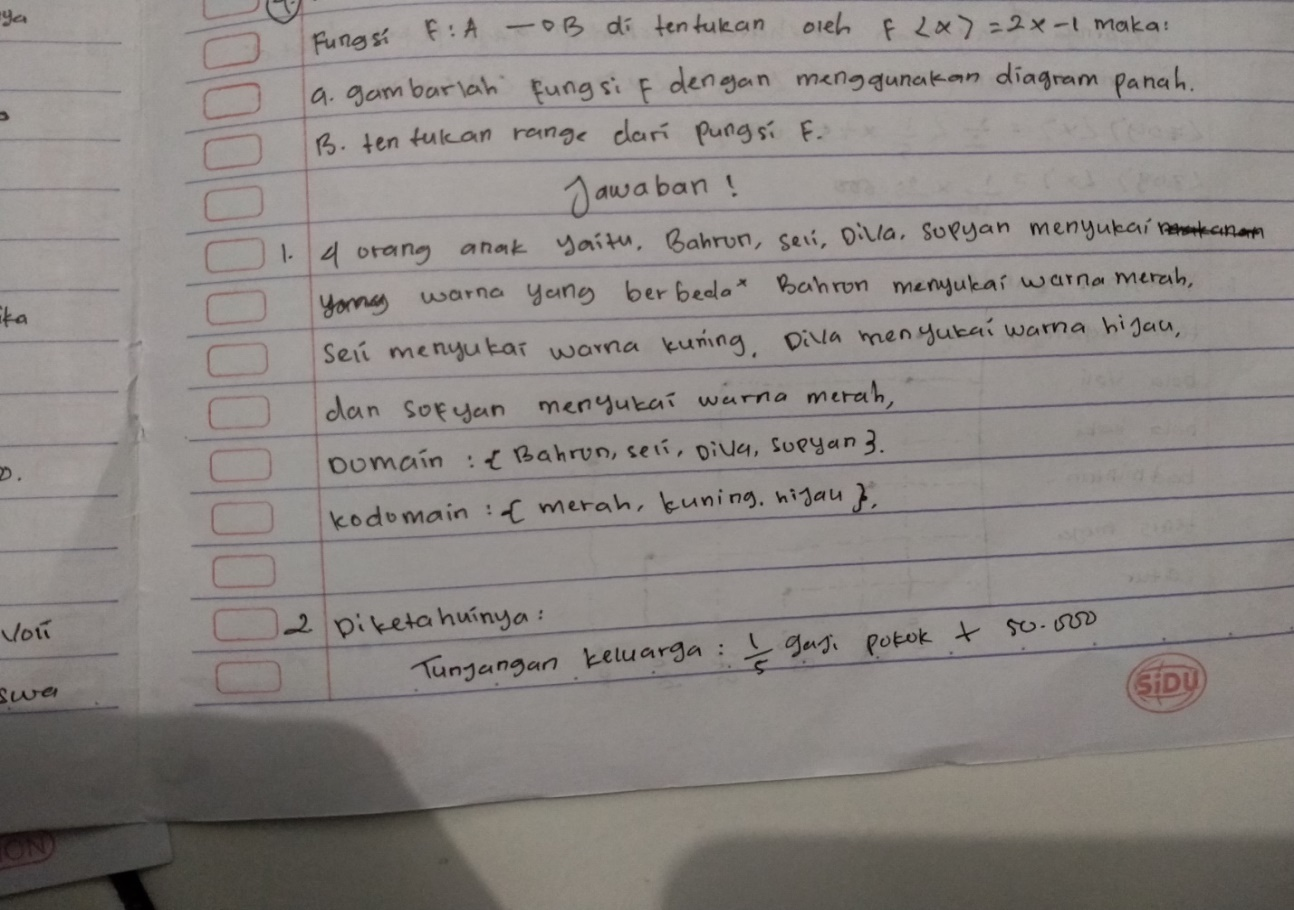 ya
Fungsi F : A → B di tentukan oleh F <x> = 2x - 1 maka:
a. gambarlah fungsi F dengan menggunakan diagram panah.
B. ten tukan range dari pungsi F.
Jawaban !
1. 4 orang anak yaitu, Bahrun, seli, Dilla, supyan menyukai
yang warna yang berbeda" Bahron menyukai warna merah,
ika
Seli menyukai warna kuning, Dilla menyukai warna hijau,
dan sofyan menyukai warna merah,
Domain : { Bahrun, seli, Dilla, supyan }.
kodomain : { merah, kuning, hijau },
2 Diketahuinya :
Voli
Tunjangan keluarga : 1/5 gaji pokok + 50.000
swa
SiDU
ON